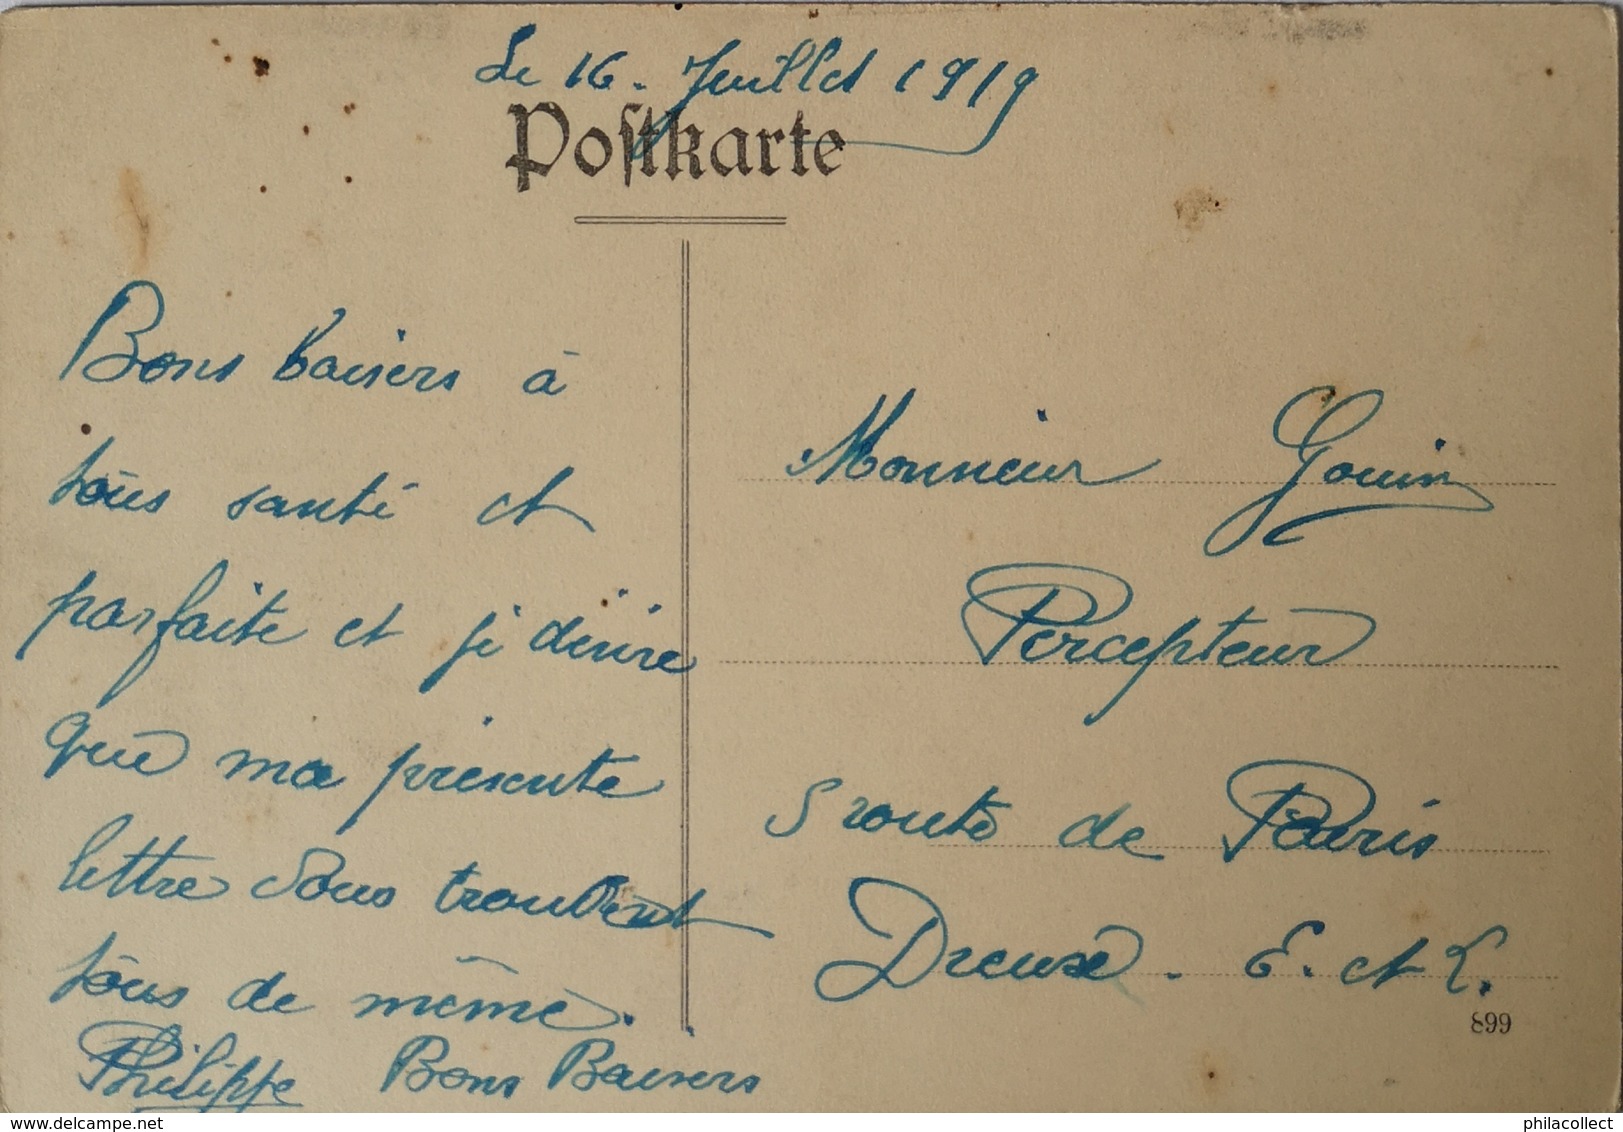 Le 16. Juillet 1919
Postkarte
Bons baisers à
tous santé et
parfaite et je désire
que ma présente
lettre vous trouvent
tous de même.
Philippe Bons Baisers
Monsieur Gouin
Percepteur
5 route de Paris
Dreux. E. et L.
899
delcampe.net
philacollect